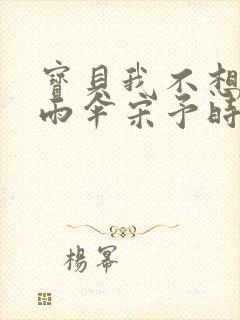 寶貝我不想
雨傘宋予時
楊冪